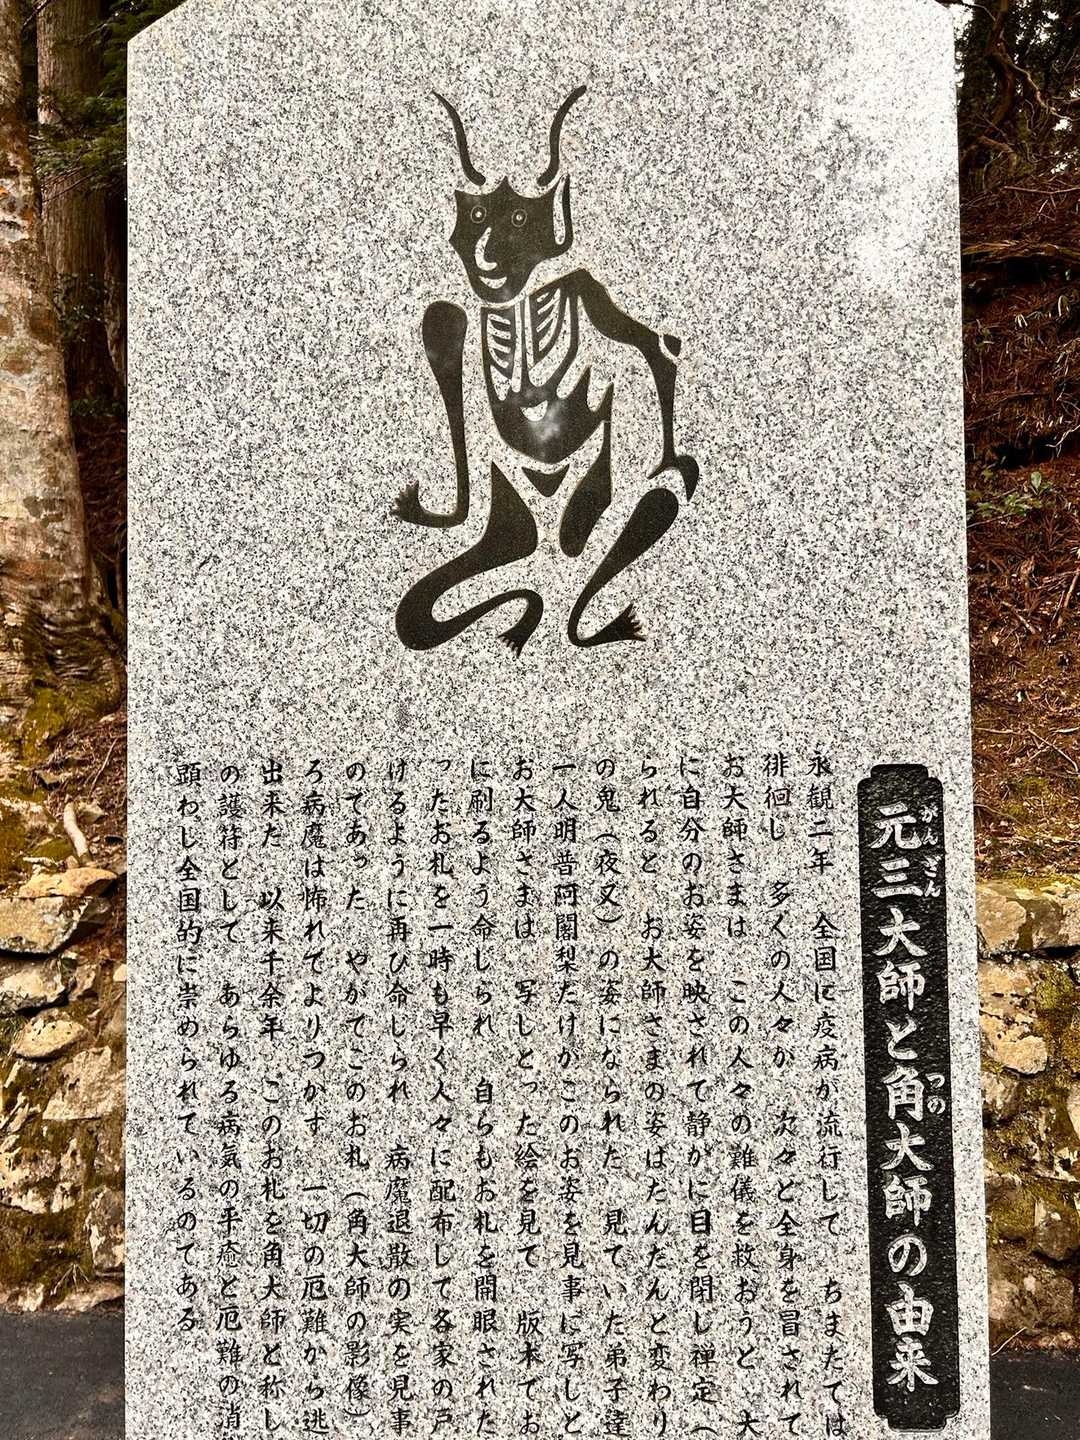 元三大師と角大師の由来
がんざん
つの
永観二年 全国に疫病が流行して ちまたでは
徘徊し 多くの人々が 次々と全身を冒されて
お大師さまは この人々の難儀を救おうと 大
に自分のお姿を映されて静かに目を閉じ禅定(
られると お大師さまの姿はだんだんと変わり
の鬼(夜叉)の姿になられた 見ていた弟子達
一人明普阿闍梨だけがこのお姿を見事に写しと
お大師さまは 写しとった絵を見て 版木でお
に刷るよう命じられ 自らもお札を開眼された
ったお札を一時も早く人々に配布して各家の戸
けるように再び命じられ 病魔退散の実を見事
のであった やがてこのお札(角大師の影像)
ろ病魔は怖れてよりつかず 一切の厄難から逃
出来た 以来千余年 このお札を角大師と称し
の護符として あらゆる病気の平癒と厄難の消
顕わし全国的に崇められているのである